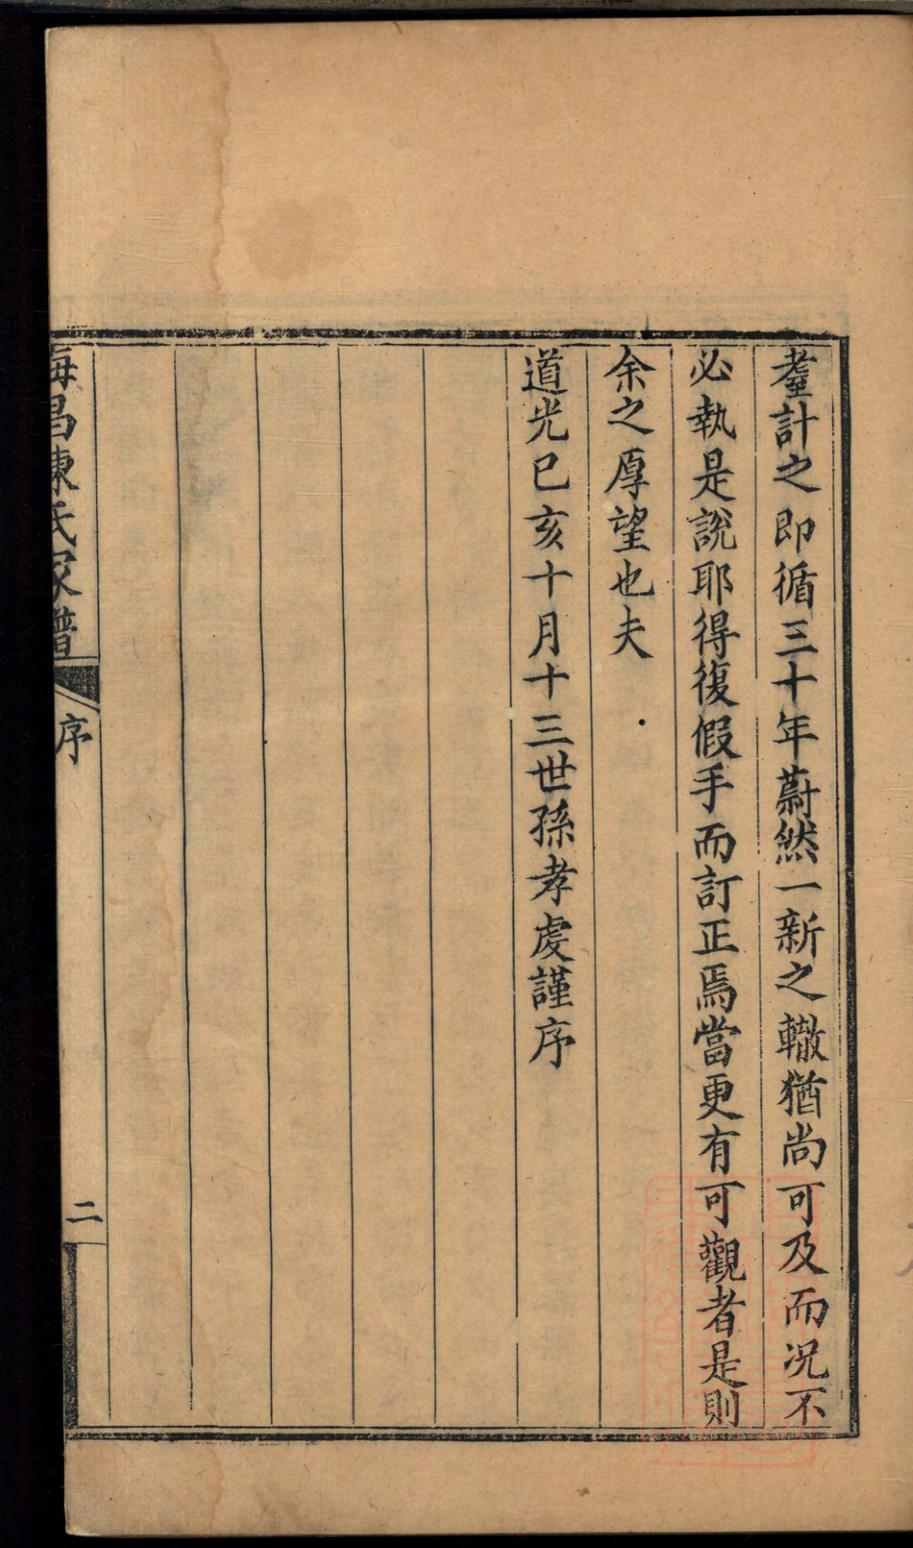 耋計之即循三十年蔚然一新之轍猶尚可及而况不
必執是說耶得復假手而訂正焉當更有可觀者是則
余之厚望也夫
道光已亥十月十三世孫孝虔謹序
海昌陳氏家譜
序
二